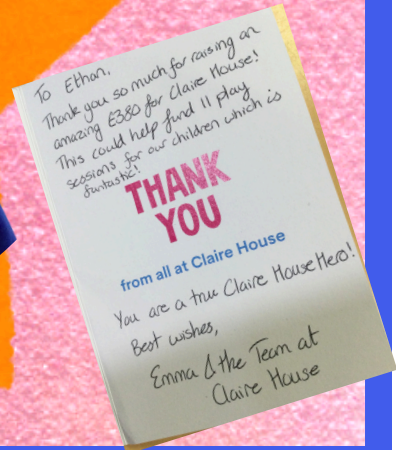 To Ethan,
Thank you so much for raising an
amazing £380 for Claire House!
This could help fund 11 play
sessions for our children which is
fantastic!
THANK
YOU
from all at Claire House
You are a true Claire House Hero!
Best wishes,
Emma & the Team at
Claire House